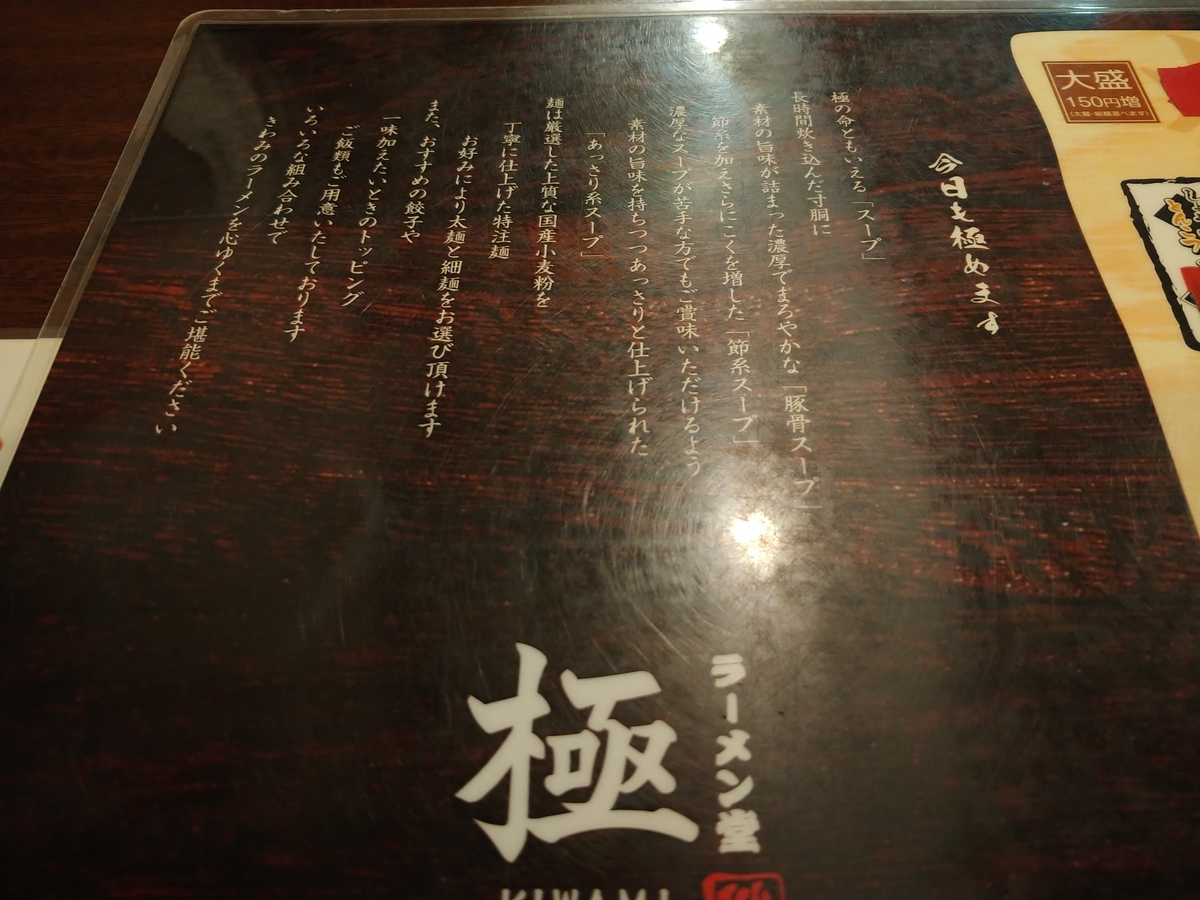 大盛
150円増
(太麺・細麺選べます)
今日も極めます
極の命ともいえる「スープ」
長時間炊き込んだ寸胴に
素材の旨味が詰まった濃厚でまろやかな「豚骨スープ」
節系を加えさらにこくを増した「節系スープ」
濃厚なスープが苦手な方でもご賞味いただけるよう
素材の旨味を持ちつつあっさりと仕上げられた
「あっさり系スープ」
麺は厳選した上質な国産小麦粉を
丁寧に仕上げた特注麺
お好みにより太麺と細麺をお選び頂けます
また、おすすめの餃子や
一味加えたいときのトッピング
ご飯類もご用意いたしております
いろいろな組み合わせで
きわみのラーメンを心ゆくまでご堪能ください
ラーメン堂
極
KIWAMI